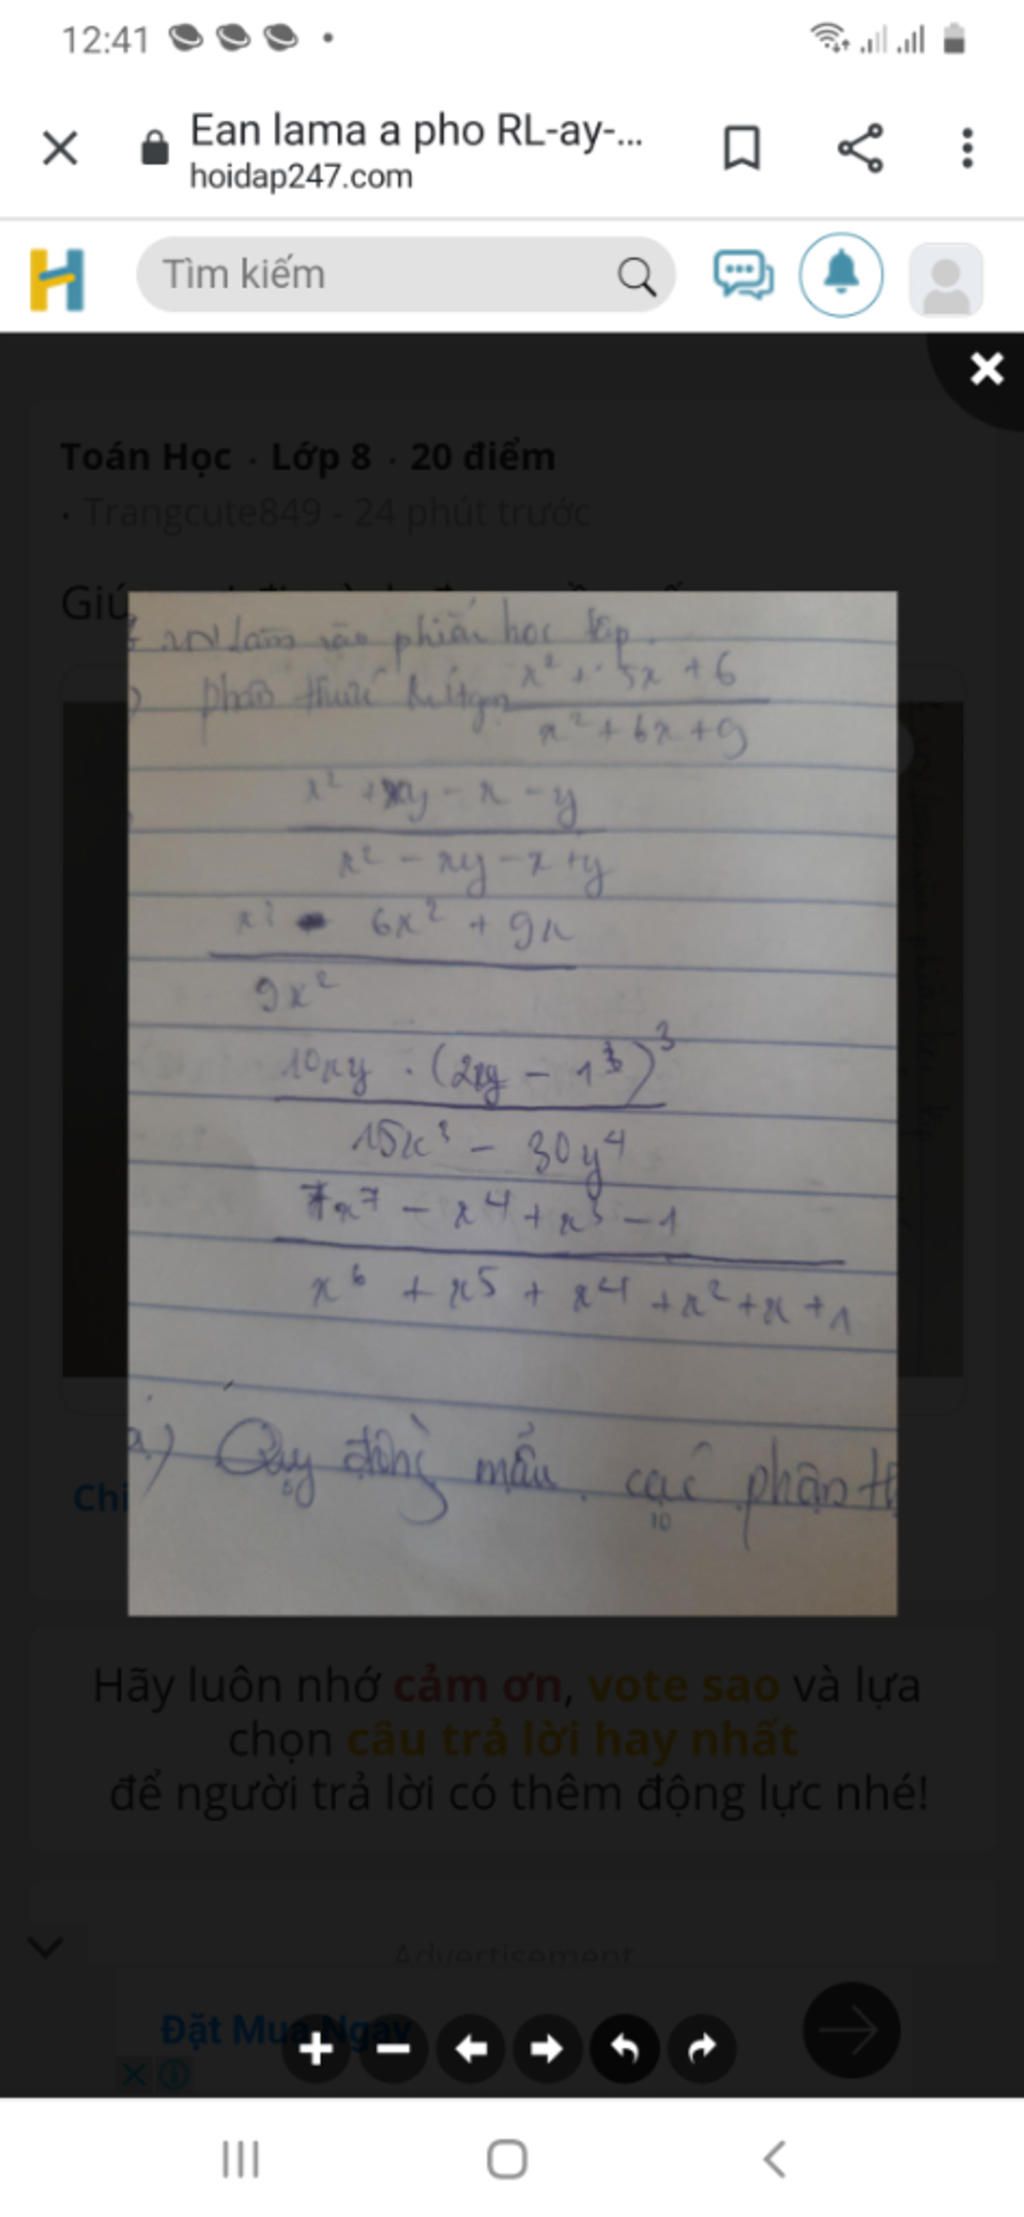 12:41
Ean lama a pho RL-ay-...
hoidap247.com
H Tìm kiếm
Toán Học · Lớp 8 · 20 điểm
· Trangcute849 - 24 phút trước
Giú
phiếu học tập.
phân thức Rútgọn x² + 5x + 6
x² + 6x + 9
x² + xy - x - y
x² - xy - x + y
x³ - 6x² + 9x
9x²
10xy · (2xy - 1³)³
15x³ - 30y⁴
x⁷ - x⁴ + x³ - 1
x⁶ + x⁵ + x⁴ + x² + x + 1
a) Quy đồng mẫu các phân th
Chi
10
Hãy luôn nhớ cảm ơn, vote sao và lựa
chọn câu trả lời hay nhất
để người trả lời có thêm động lực nhé!
Advertisement
Đặt Mua Ngay